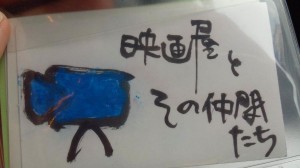 映画屋と
その仲間
たち